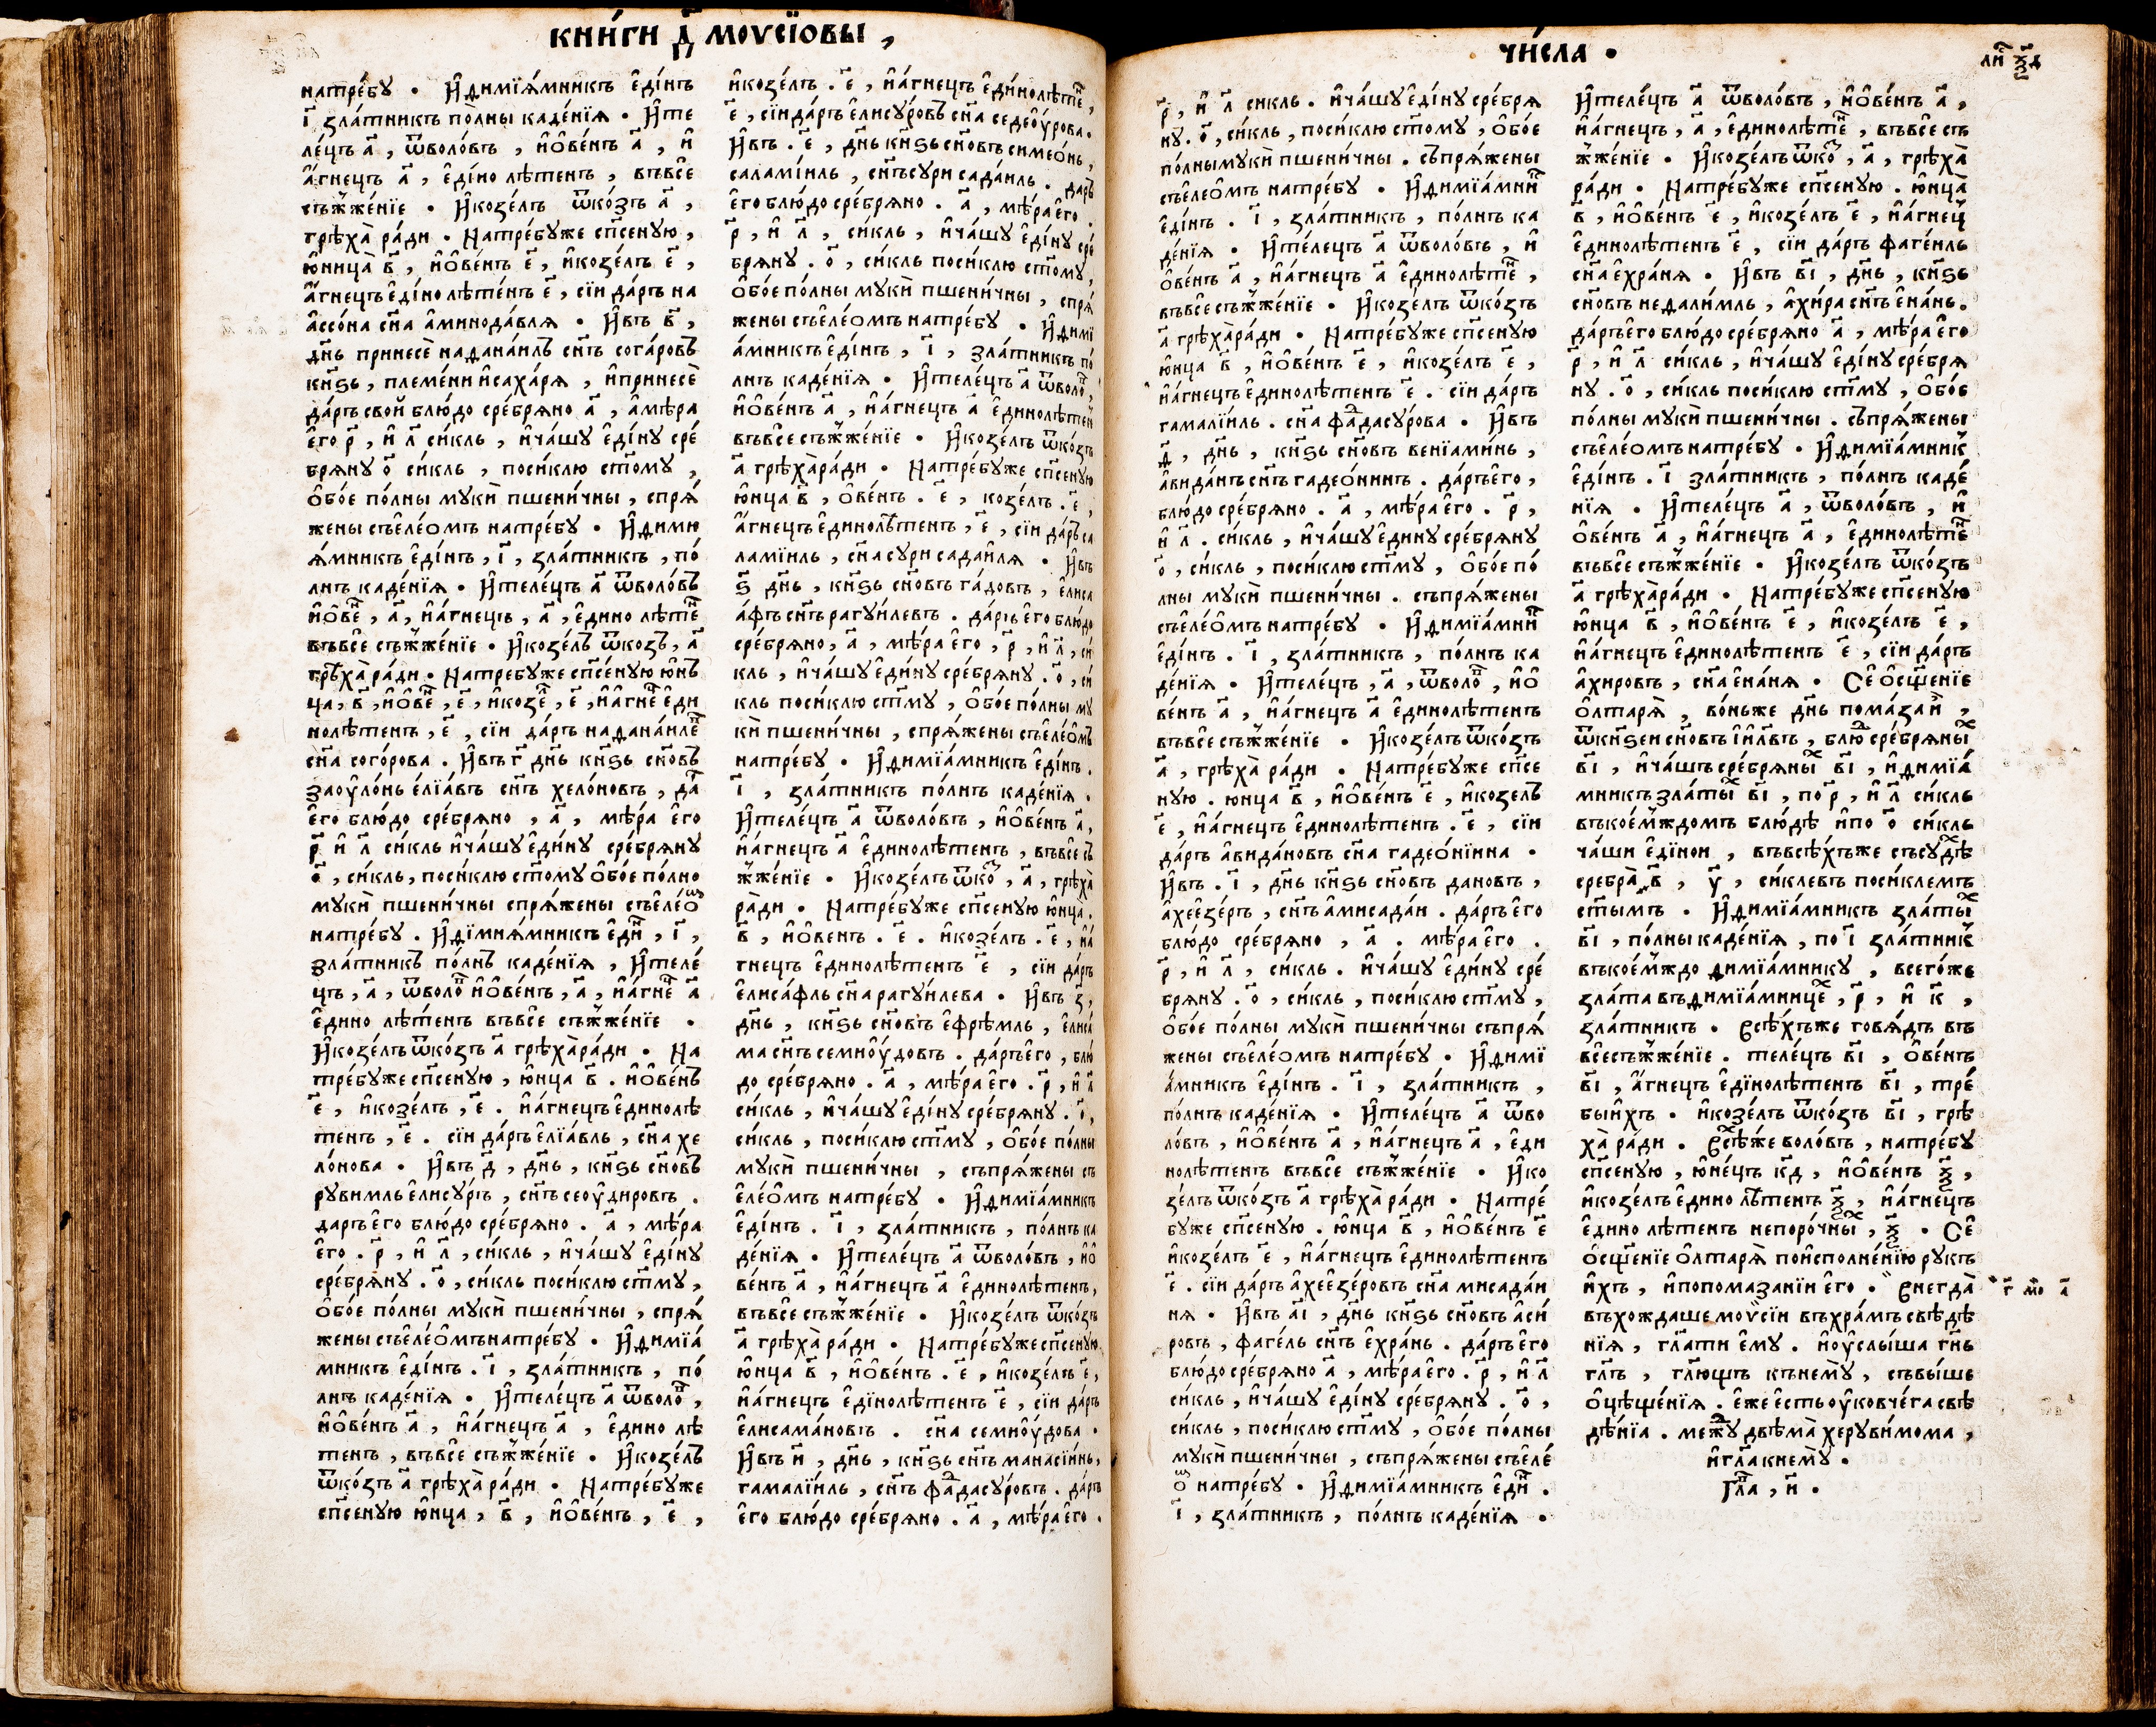 КНИ́ГИ Д҃ МОѴСІ́ѠВЫ ,
натре́бꙋ . И҆димїѧ́мникъ є҆ди́нъ
і҃ зла́тникъ по́лны каде́нїѧ . И҆те
ле́цъ а҃ , ѿволо́въ , и҆ѻ҆ве́нъ а҃ , и҆
а҆́гнецъ а҃ , є҆ди́но лѣ́тенъ , въвсе
съжже́нїе . И҆козе́лъ ѿко́зъ а҃ ,
грѣха̀ ра́ди . Натре́бꙋже сп҃сенꙋю ,
ю҆́ница̀ в҃ , и҆ѻ҆ве́нъ є҃ , и҆козе́лъ є҃ ,
а҆́гнецъ є҆ди́но лѣ́тенъ є҃ , сїи да́ръ на
ассо́на сн҃а а҆минода́влѧ . И҆въ в҃ ,
дн҃ь принесѐ наѳана́илъ сн҃ъ согаровъ
кн҃ѕь , племе́ни и҆саха́рѧ , и҆принесѐ
да́ръ свой блю́до сре́брѧно а҃ , а҆мѣ́ра
є҆го̀ р҃ , и҆ л҃ си́кль , и҆ча́шꙋ є҆ди́нꙋ сре́
брѧнꙋ о҃ си́кль , поси́клю ст҃омꙋ ,
ѻ҆бо́е по́лны мꙋкѝ пшени́чны , спрѧ́
жены съє҆ле́омъ натре́бꙋ . И҆дими
ѧ́мникъ є҆ди́нъ , і҃ , зла́тникъ , по́
лнъ каде́нїѧ . И҆теле́цъ а҃ ѿволо́въ
и҆ѻ҆ве , а҃ , и҆а҆́гнецъ , а҃ , є҆дино лѣте
въвсе съжже́нїе . И҆козе́лъ ѿкозъ , а҃
грѣха̀ ра́ди . Натребꙋже сп҃се́нꙋю ю҆н
ца , в҃ , и҆ѻ҆ве , є҃ , и҆козе , є҃ , и҆а҆гне є҆ди
нолѣтенъ , є҃ , сїи да́ръ наѳана́иле
сн҃а сого́рова . И҆въ г҃ дн҃ь кн҃ѕь сн҃овъ
заоу҆ло́нь є҆лїа́въ сн҃ъ хело́новъ , да
є҆го блю́до сре́брѧно , а҃ , мѣ́ра є҆го
р҃ и҆ л҃ си́кль и҆ча́шꙋ є҆ди́нꙋ сре́брѧнꙋ
о҃ , си́кль , поси́клю ст҃омꙋ ѻ҆бо́е по́лно
мꙋкѝ пшени́чны спрѧ́жены съє҆ле́о
натре́бꙋ . И҆димиѧ́мникъ є҆ди , і҃ ,
зла́тникъ по́лнъ каде́нїѧ , И҆теле́
цъ , а҃ , ѿволо и҆ѻ҆ве́нъ , а҃ , и҆а҆́гне а҃
є҆дино лѣ́тенъ въвсе съжже́нїе .
И҆козе́лъ ѿко́зъ а҃ грѣха̀ра́ди . На
тре́бꙋже сп҃сенꙋю , ю҆нца в҃ . и҆ѻ҆ве́нъ
є҃ , и҆козе́лъ , є҃ . и҆а҆́гнецъ є҆динолѣ
тенъ , є҃ . сїи да́ръ є҆лїа́вль , сн҃а хе
ло́нова . И҆въ д҃ , дн҃ь , кн҃ѕь сн҃овъ
рꙋвимль є҆лисꙋ́ръ , сн҃ъ сеоу҆дировъ .
даръ є҆го блю́до сре́брѧно . а҃ , мѣ́ра
є҆го . р҃ , и҆ л҃ , си́кль , и҆ча́шꙋ є҆ди́нꙋ
сре́брѧнꙋ . о҃ , си́кль поси́клю ст҃мꙋ ,
ѻ҆бо́е по́лны мꙋкѝ пшени́чны , спрѧ́
жены съє҆ле́ѻ҆мъ натре́бꙋ . И҆димїа́
мникъ є҆ди́нъ . і҃ , зла́тникъ , по́
лнъ каде́нїѧ . И҆теле́цъ а҃ ѿволо ,
и҆ѻ҆ве́нъ а҃ , и҆а҆́гнецъ а҃ , є҆дино лѣ
тенъ , въвсе съжже́нїе . И҆козе́лъ
ѿко́зъ а҃ грѣха̀ ра́ди . Натре́бꙋже
сп҃сенꙋю ю҆нца , в҃ , и҆ѻ҆ве́нъ , є҃ ,
и҆козе́лъ . є҃ , и҆а҆́гнецъ є҆дино́лѣте ,
є҃ , сїи да́ръ є҆лисꙋ́ровъ сн҃а седео҆ꙋ́рова .
И҆въ . є҃ , дн҃ь кн҃ѕь сн҃овъ симео́нь ,
салами́иль , сн҃ъ сꙋри сада́иль . даръ
є҆го блю́до сре́брѧно . а҃ , мѣ́ра є҆го .
р҃ , и҆ л҃ , си́кль , и҆ча́шꙋ є҆ди́нꙋ сре́
брѧнꙋ . о҃ , си́кль поси́клю ст҃омꙋ ,
ѻ҆бо́е по́лны мꙋкѝ пшени́чны , спрѧ́
жены съє҆ле́омъ натре́бꙋ . И҆димї
а́мникъ є҆ди́нъ , і҃ , зла́тникъ по́
лнъ каде́нїѧ . И҆теле́цъ а҃ ѿволо ,
и҆ѻ҆ве́нъ а҃ , и҆а҆́гнецъ а҃ є҆динолѣтен
въвсе съжже́нїе . И҆козе́лъ ѿко́зъ
а҃ грѣха̀ра́ди . Натре́бꙋже сп҃сенꙋю
ю҆нца в҃ , ѻ҆ве́нъ . є҃ , козе́лъ . є҃ ,
а҆́гнецъ є҆динолѣтенъ , є҃ , сїи даръ са
ламїиль , сн҃а сꙋри сада́илѧ . И҆въ
ѕ҃ дн҃ь , кн҃ѕь сн҃овъ га́довъ , є҆лиса
а́фъ сн҃ъ рагꙋи́левъ . да́ръ є҆го блю́до
сре́брѧно , а҃ , мѣ́ра є҆го , р҃ , и҆ л҃ , си
кль , и҆ча́шꙋ є҆ди́нꙋ сре́брѧнꙋ . о҃ , си́
кль поси́клю ст҃мꙋ , ѻ҆бо́е по́лны мꙋ
кѝ пшени́чны , спрѧ́жены съє҆ле́ѻ҆мъ
натре́бꙋ . И҆димїа́мникъ є҆ди́нъ .
і҃ , зла́тникъ по́лнъ каде́нїѧ .
И҆теле́цъ а҃ ѿволо́въ , и҆ѻ҆ве́нъ а҃ ,
и҆а҆́гнецъ а҃ є҆динолѣтенъ , въвсе съ
жже́нїе . И҆козе́лъ ѿко , а҃ , грѣха̀
ра́ди . Натре́бꙋже сп҃сенꙋю ю҆нца .
в҃ , и҆ѻ҆венъ . є҃ . и҆козе́лъ . є҃ , и҆а҆
гнецъ є҆динолѣтенъ є҃ , сїи да́ръ
є҆лиса́фль сн҃а рагꙋи́лева . И҆въ з҃ ,
дн҃ь , кн҃ѕь сн҃овъ є҆фрѣ́мль , є҆лиса́
ма сн҃ъ семиоу҆́довъ . да́ръ є҆го , блю́
до сре́брѧно . а҃ , мѣ́ра є҆го . р҃ , и҆ л҃
си́кль , и҆ча́шꙋ є҆ди́нꙋ сре́брѧнꙋ . о҃ ,
си́кль , поси́клю ст҃мꙋ , ѻ҆бо́е по́лны
мꙋкѝ пшени́чны , съпрѧ́жены съ
є҆ле́ѻ҆мъ натре́бꙋ . И҆димїа́мникъ
є҆ди́нъ . і҃ , зла́тникъ , по́лнъ ка
де́нїѧ . И҆теле́цъ а҃ ѿволо́въ , и҆ѻ҆
ве́нъ а҃ , и҆а҆́гнецъ а҃ є҆динолѣтенъ ,
въвсе съжже́нїе . И҆козе́лъ ѿко́зъ
а҃ грѣха̀ ра́ди . Натре́бꙋже сп҃сенꙋю
ю҆нца в҃ , и҆ѻ҆ве́нъ . є҃ , и҆козе́лъ є҃ ,
и҆а҆́гнецъ є҆динолѣтенъ є҃ , сїи да́ръ
є҆лисама́новъ . сн҃а семиоу҆́дова .
И҆въ и҃ , дн҃ь , кн҃ѕь сн҃ъ манасі́инь ,
гамалїи́ль , сн҃ъ фадасꙋ́ровъ . да́ръ
є҆го блю́до сре́брѧно . а҃ , мѣ́ра є҆го .
ЧИ́СЛА .
ли ѯ҃д
р҃ , и҆ л҃ сикль . и҆ча́шꙋ є҆ди́нꙋ сре́брѧ
нꙋ . о҃ , си́кль , поси́клю ст҃омꙋ , ѻ҆бо́е
по́лны мꙋкѝ пшени́чны . съпрѧ́жены
съє҆леѻ҆мъ натре́бꙋ . И҆димїа́мни
є҆ди́нъ . і҃ , зла́тникъ , по́лнъ ка
де́нїѧ . И҆те́лецъ а҃ ѿволо́въ , и҆
ѻ҆ве́нъ а҃ , и҆а҆́гнецъ а҃ є҆динолѣте ,
въвсе съжже́нїе . И҆козе́лъ ѿко́зъ
а҃ грѣха̀ра́ди . Натре́бꙋже сп҃сенꙋю
ю҆нца в҃ , и҆ѻ҆ве́нъ є҃ , и҆козе́лъ є҃ ,
и҆а҆́гнецъ є҆динолѣтенъ є҃ . сїи да́ръ
гамалїи́ль . сн҃а фадасꙋ́рова . И҆въ
д҃ , дн҃ь , кн҃ѕь сн҃овъ венїами́нь ,
а҆вида́нъ сн҃ъ гадео́нинъ . да́ръ є҆го ,
блю́до сре́брѧно . а҃ , мѣ́ра є҆го . р҃ ,
и҆ л҃ . си́кль , и҆ча́шꙋ є҆динꙋ сре́брѧнꙋ
о҃ , си́кль , поси́клю ст҃мꙋ , ѻ҆бо́е по́
лны мꙋкѝ пшени́чны . съпрѧ́жены
съє҆ле́ѻ҆мъ натре́бꙋ . И҆димїа́мни
є҆ди́нъ . і҃ , зла́тникъ , по́лнъ ка
де́нїѧ . И҆теле́цъ , а҃ , ѿволо , и҆ѻ҆
ве́нъ а҃ , и҆а҆́гнецъ а҃ є҆динолѣтенъ
въвсе съжже́нїе . И҆козе́лъ ѿко́зъ
а҃ , грѣха̀ ра́ди . Натре́бꙋже сп҃се
нꙋю . юнца в҃ , и҆ѻ҆ве́нъ є҃ , и҆козелъ
є҃ , и҆а҆́гнецъ є҆динолѣтенъ . є҃ , сїи
да́ръ а҆вида́новъ сн҃а гадео́нїина .
И҆въ . і҃ , дн҃ь кн҃ѕь сн҃овъ дановъ ,
а҆хеє҆зе́ръ , сн҃ъ а҆мисада́и . да́ръ є҆го
блю́до сре́брѧно , а҃ . мѣ́ра є҆го .
р҃ , и҆ л҃ , си́кль . и҆ча́шꙋ є҆ди́нꙋ сре́
брѧнꙋ . о҃ , си́кль , поси́клю ст҃мꙋ ,
ѻ҆бо́е по́лны мꙋкѝ пшени́чны съпрѧ́
жены съє҆ле́омъ натре́бꙋ . И҆димї
а́мникъ є҆ди́нъ . і҃ , зла́тникъ ,
по́лнъ каде́нїѧ . И҆теле́цъ а҃ ѿво
ло́въ , и҆ѻ҆ве́нъ а҃ , и҆а҆́гнецъ а҃ , є҆ди
нолѣтенъ въвсе съжже́нїе . И҆ко
зе́лъ ѿко́зъ а҃ грѣха̀ ра́ди . Натре́
бꙋже сп҃сенꙋю . ю҆нца в҃ , и҆ѻ҆ве́нъ є҃
и҆козе́лъ є҃ , и҆а҆́гнецъ є҆динолѣтенъ
є҃ . сїи да́ръ а҆хеє҆зе́ровъ сн҃а мисада́и
нѧ . И҆въ а҃і , дн҃ь кн҃ѕь сн҃овъ а҆си́
ровъ , фаге́ль сн҃ъ є҆хра́нь . да́ръ є҆го
блю́до сре́брѧно а҃ , мѣ́ра є҆го . р҃ , и҆ л҃
си́кль , и҆ча́шꙋ є҆ди́нꙋ сре́брѧнꙋ . о҃ ,
си́кль , поси́клю ст҃мꙋ , ѻ҆бо́е по́лны
мꙋкѝ пшени́чны , съпрѧ́жены съє҆ле́
о натре́бꙋ . И҆димїа́мникъ є҆ди .
і҃ , зла́тникъ , по́лнъ каде́нїѧ .
И҆теле́цъ а҃ ѿволо́въ , и҆ѻ҆ве́нъ а҃ ,
и҆а҆́гнецъ , а҃ , є҆динолѣте , въвсе съ
жже́нїе . И҆козе́лъ ѿко , а҃ , грѣха̀
ра́ди . Натре́бꙋже сп҃сенꙋю . ю҆нца̀
в҃ , и҆ѻ҆ве́нъ є҃ , и҆козе́лъ є҃ , и҆а҆́гнец
є҆динолѣтенъ є҃ , сїи да́ръ фаге́иль
сн҃а є҆хра́нѧ . И҆въ в҃і , дн҃ь , кн҃ѕь
сн҃овъ неѳали́мль , а҆хи́ра сн҃ъ є҆на́нь .
да́ръ є҆го блю́до сре́брѧно а҃ , мѣ́ра є҆го
р҃ , и҆ л҃ си́кль , и҆ча́шꙋ є҆ди́нꙋ сре́брѧ
нꙋ . о҃ , си́кль поси́клю ст҃мꙋ , ѻ҆бо́е
по́лны мꙋкѝ пшени́чны . съпрѧ́жены
съє҆ле́омъ натре́бꙋ . И҆димїа́мник
є҆ди́нъ . і҃ зла́тникъ , по́лнъ каде́
нїѧ . И҆теле́цъ а҃ , ѿволо́въ , и҆
ѻ҆ве́нъ а҃ , и҆а҆́гнецъ а҃ , є҆динолѣте
въвсе съжже́нїе . И҆козе́лъ ѿко́зъ
а҃ грѣха̀ра́ди . Натре́бꙋже сп҃сенꙋю
ю҆нца в҃ , и҆ѻ҆ве́нъ є҃ , и҆козе́лъ є҃ ,
и҆а҆́гнецъ є҆динолѣтенъ є҃ , сїи да́ръ
а҆хировъ , сн҃а є҆на́нѧ . Се ѻ҆сщ҃е́нїе
ѻ҆лтарѧ̀ , во́ньже дн҃ь пома́заи ,
ѿкн҃ѕеи сн҃овъ і҆и҃лвъ , блю сре́брѧны
в҃і , и҆ча́шъ сре́брѧны в҃і , и҆димїа́
мникъ златы в҃і , по р҃ , и҆ л҃ си́кль
въкое́мждомъ блю́дѣ и҆по о҃ си́кль
ча́ши є҆ди́нои , въвсѣ́хъже съсꙋдѣ
сребра̀ в҃ , у҃ , си́клевъ поси́клемъ
ст҃ымъ . И҆димїа́мникъ златы́
в҃і , по́лны каде́нїѧ , по і҃ зла́тник
въкое́мждо димїа́мникꙋ , всего́же
зла́та въдимїа́мнице , р҃ , и҆ к҃ ,
зла́тникъ . Всѣ́хъже говѧ́дъ въ
всесъжже́нїе . теле́цъ в҃і , ѻ҆ве́нъ
в҃і , а҆́гнецъ є҆динолѣтенъ в҃і , тре́
бы и҆хъ . и҆козе́лъ ѿко́зъ в҃і , грѣ
ха̀ ра́ди . Всѣже воло́въ , натре́бꙋ
сп҃сенꙋю , ю҆не́цъ к҃д , и҆ѻ҆ве́нъ ѯ҃ ,
и҆козе́лъ є҆дино лѣтенъ ѯ҃ , и҆а҆́гнецъ
є҆дино лѣтенъ непоро́чны , ѯ҃ . Се
ѻ҆сщ҃е́нїе ѻ҆лтарѧ̀ поисполне́нїю рꙋкъ
и҆́хъ , и҆попомазанїи є҆го . Внегда̀
въхождаше моѵ́сїи въхра́мъ свѣдѣ
нїѧ , гл҃ати є҆мꙋ . и҆оу҆слы́ша гн҃ь
гл҃ъ , гл҃ющъ кънемꙋ̀ , съвы́ше
ѻ҆цѣще́нїѧ . є҆же є҆сть оу҆ковче́га свѣ
дѣ́нїа . межꙋ двѣ́ма херꙋви́мома ,
и҆гл҃а кнемꙋ̀ .
Гл҃а , и҃ .
г҃ мо а҃